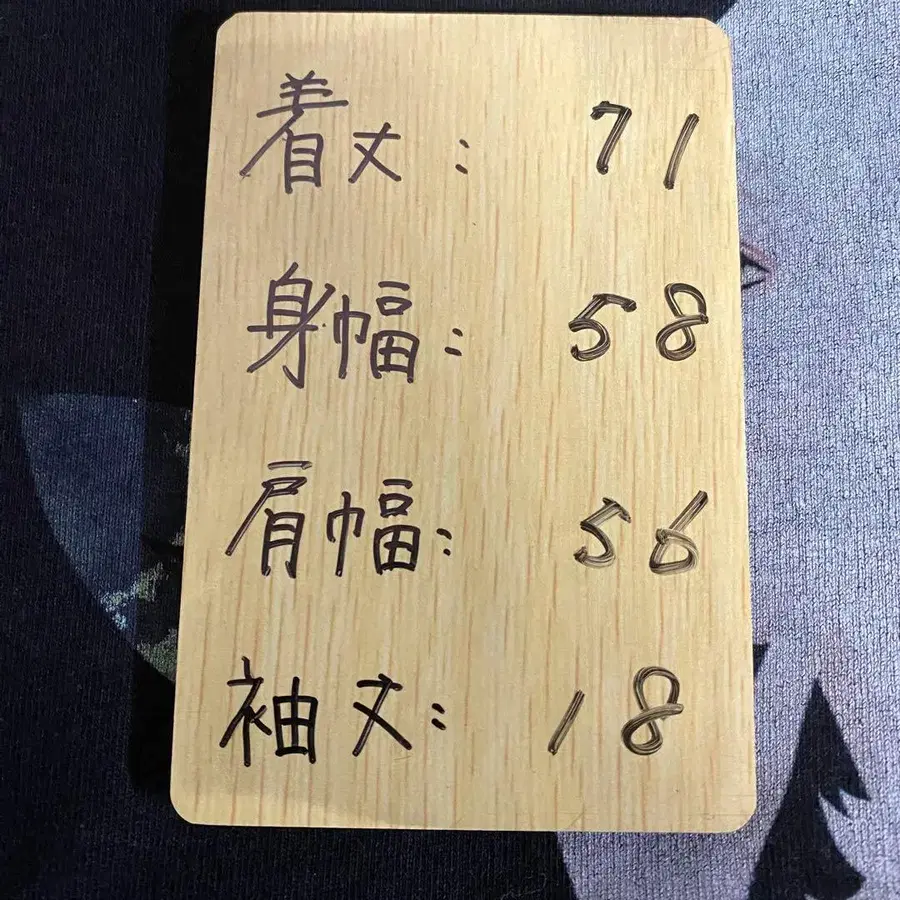 着丈: 71
身幅: 58
肩幅: 56
袖丈: 18